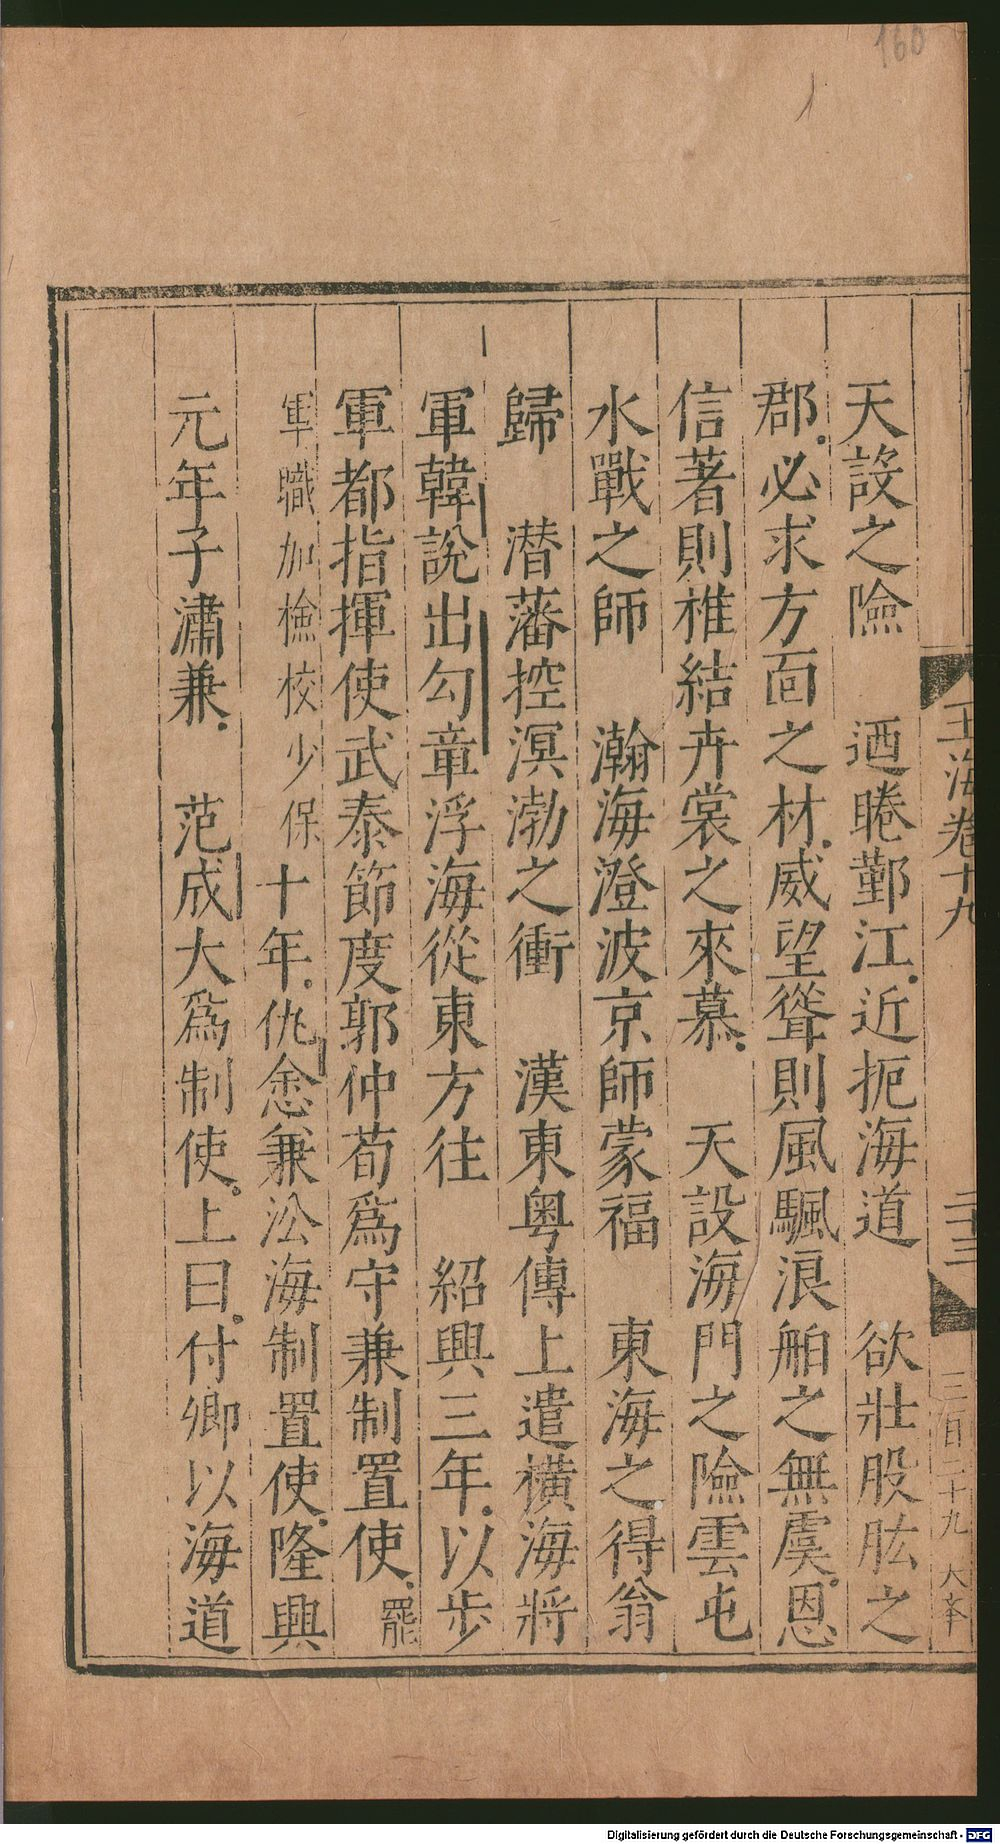 160
玉海卷十九
二十三
三百二十九
天設之險 迺睠鄞江近扼海道 欲壯股肱之
郡必求方面之材威望聳則風颿浪舶之無虞恩
信著則椎結卉裳之來慕 天設海門之險雲屯
水戰之師 瀚海澄波京師蒙福 東海之得翁
歸 潛藩控溟渤之衝 漢東粤傳上遣橫海將
軍韓說出勾章浮海從東方往 紹興三年以步
軍都指揮使武泰節度郭仲荀爲守兼制置使罷
軍職加檢校少保十年仇悆兼㳂海制置使隆興
元年子潚兼 范成大爲制使上曰付卿以海道
Digitalisierung gefördert durch die Deutsche Forschungsgemeinschaft - DFG